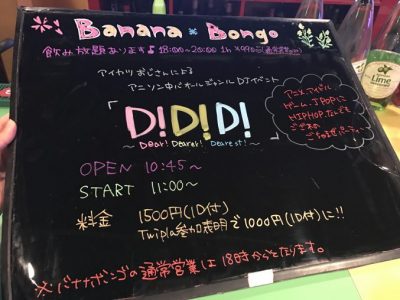 Banana * Bongo
飲み放題あります♪ 18:00~20:00 1h ¥990
アイカツおじさんによる
アニソン中心オールジャンルDJイベント
「D!D!D!」
~Dear! Dearer! Dearest!~
アニメ、アイドル
ゲーム、J POPに
HIPHOP、なんでも
ござれの
ごちゃまぜパーティー
OPEN 10:45~
START 11:00~
料金 1500円(1D付)
Twipla参加表明で1000円(1D付)に!!
※バナナボンゴの通常営業は18時からとなります。
Lime